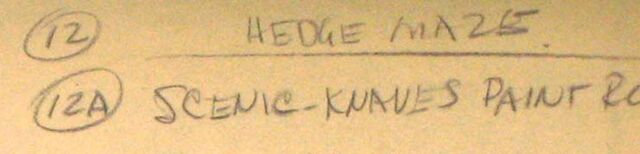 12 HEDGE MAZE.
12A SCENIC-KNAVES PAINT